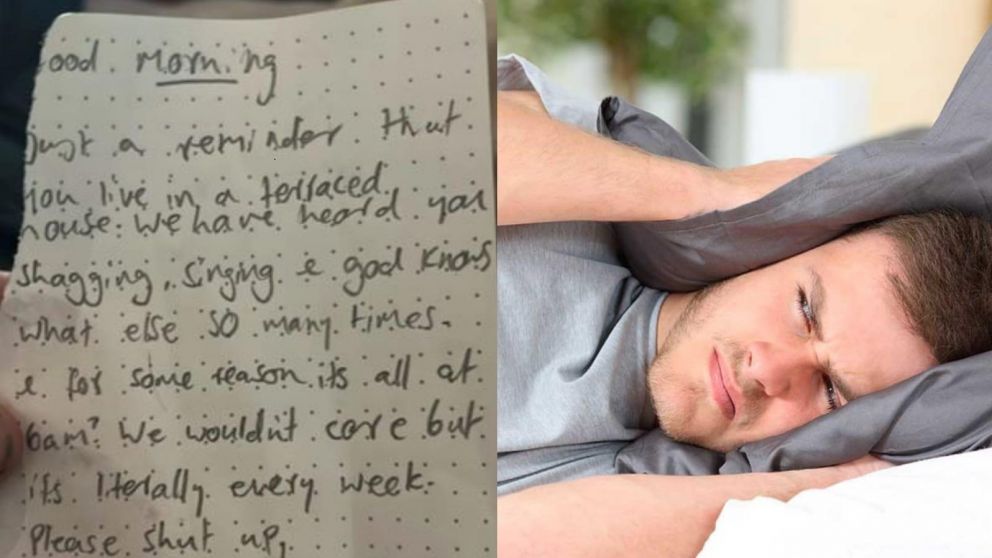 ood Morning
Just a reminder that
you live in a terraced
house. We have heard you
shagging, singing & god knows
what else so many times.
& for some reason its all at
6am? We wouldn't care but
its literally every week.
Please shut up,